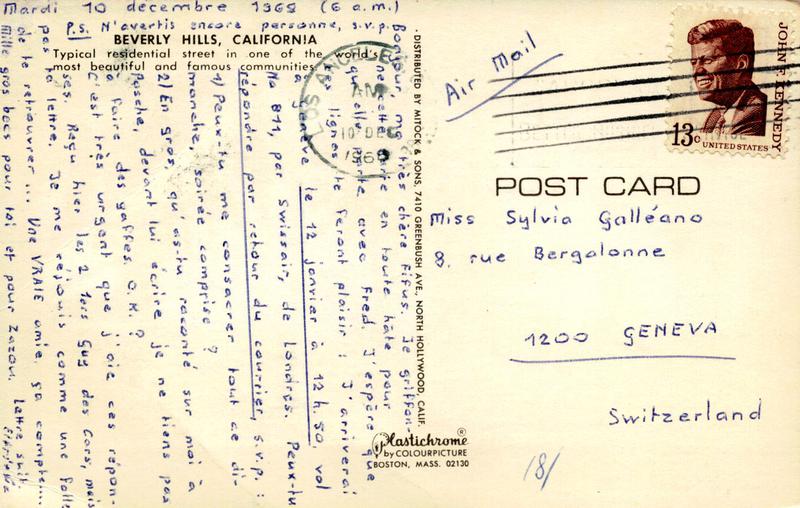 Mardi 10 decembre 1969 (6 a.m.)
P.S. N'avertis encore personne, s.v.p.
BEVERLY HILLS, CALIFORNIA
Typical residential street in one of the world's
most beautiful and famous communities.
Bonjour, ma très chère Fifus. Je griffon-
ne cette carte en toute hâte pour
qu'elle parte avec Fred. J'espère que
ces lignes te feront plaisir : J'arriverai
à Genève le 12 janvier à 12 h. 50, vol
No 811, par Swissair, de Londres. Peux-tu
répondre par retour du courrier, s.v.p. :
1) Peux-tu me consacrer tout ce di-
manche, soirée comprise ?
2) En gros, qu'as-tu raconté sur moi à
Pasche, devant lui écrire je ne tiens pas
à faire des gaffes. O.K. ?
C'est très urgent que j'aie ces répon-
ses. Reçu hier les 2 1ers Guy des Cars, mais
pas ta lettre. Je me réjouis comme une folle
de te retrouver ... Une VRAIE amie, ça compte...
Mille gros becs pour toi et pour Zazou. Lettre suit
DISTRIBUTED BY MITOCK & SONS, 7410 GREENBUSH AVE., NORTH HOLLYWOOD, CALIF.
LOS ANGELES
AM
10 DEC
1969
Air Mail
JOHN F. KENNEDY
13c UNITED STATES
POST CARD
Miss Sylvia Galléano
8, rue Bergalonne
1200 GENEVA
Switzerland
Plastichrome ®
by COLOURPICTURE
BOSTON, MASS. 02130
18/